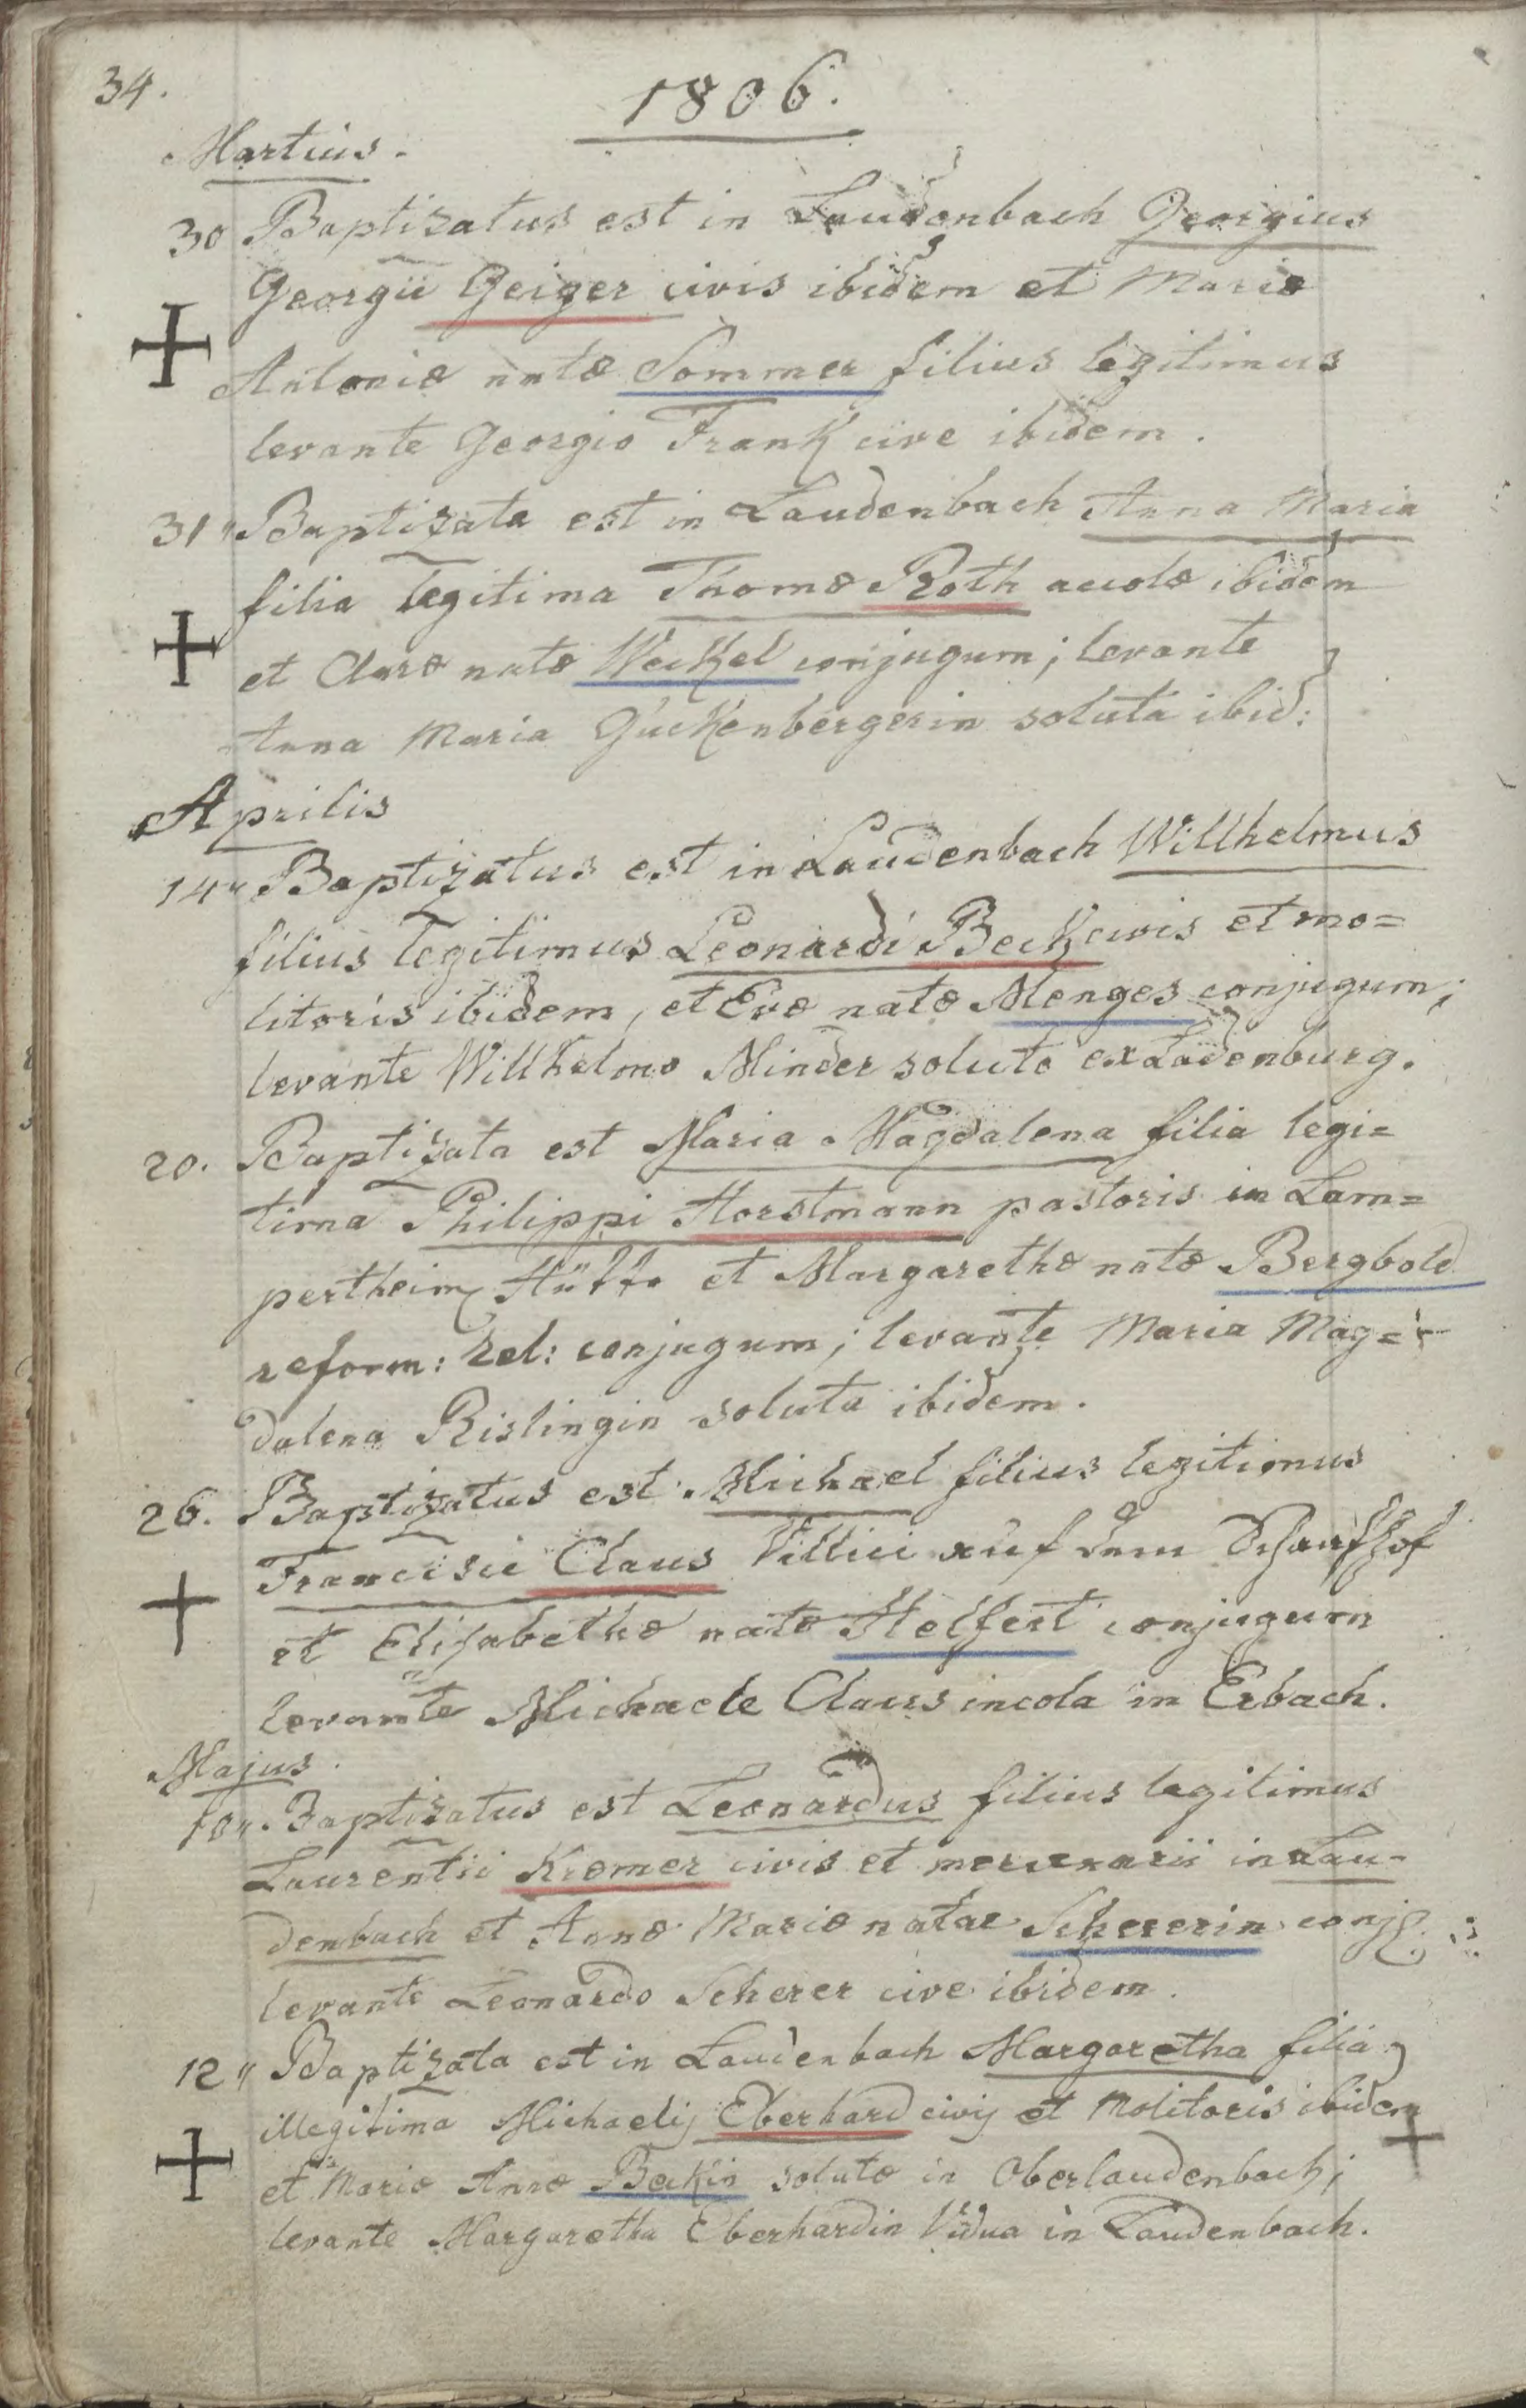 34.
1806.
Martius.
30 Baptizatus est in Laudenbach Georgius
Georgii Geiger civis ibidem et Mariæ
Antoniæ natæ Sommer filius legitimus
levante Georgio Frank cive ibidem.
31" Baptizata est in Laudenbach Anna Maria
filia legitima Thomæ Roth accolæ ibidem
et Claræ natæ Weckel conjugum; levante
Anna Maria Guckenbergerin soluta ibid:
Aprilis
14" Baptizatus est in Laudenbach Willhelmus
filius legitimus Leonardi Beck civis et mo=
litoris ibidem, et Evæ natæ Menges conjugum;
levante Willhelmo Minder soluto ex Ladenburg.
20. Baptizata est Maria Magdalena filia legi=
tima Philippi Horstmann pastoris in Lam=
pertheim Hütte et Margarethæ natæ Bergbold
reform: Rel: conjugum; levante Maria Mag=
dalena Rislingin soluta ibidem.
26. Baptizatus est Michael filius legitimus
Francisci Claus Villici auf dem Schaafhof
et Elisabethæ natæ Helfert conjugum
levante Michaele Claus incola in Erbach.
Majus.
10". Baptizatus est Leonardus filius legitimus
Laurentii Kræmer civis et mercenarii in Lau=
denbach et Annæ Mariæ natae Schererin conj:
levante Leonardo Scherer cive ibidem.
12" Baptizata est in Laudenbach Margaretha filia
illegitima Michaelis Eberhard civis et Molitoris ibidem
et Mariæ Annæ Beckin solutæ in Oberlaudenbach;
levante Margaretha Eberhardin Vidua in Laudenbach.